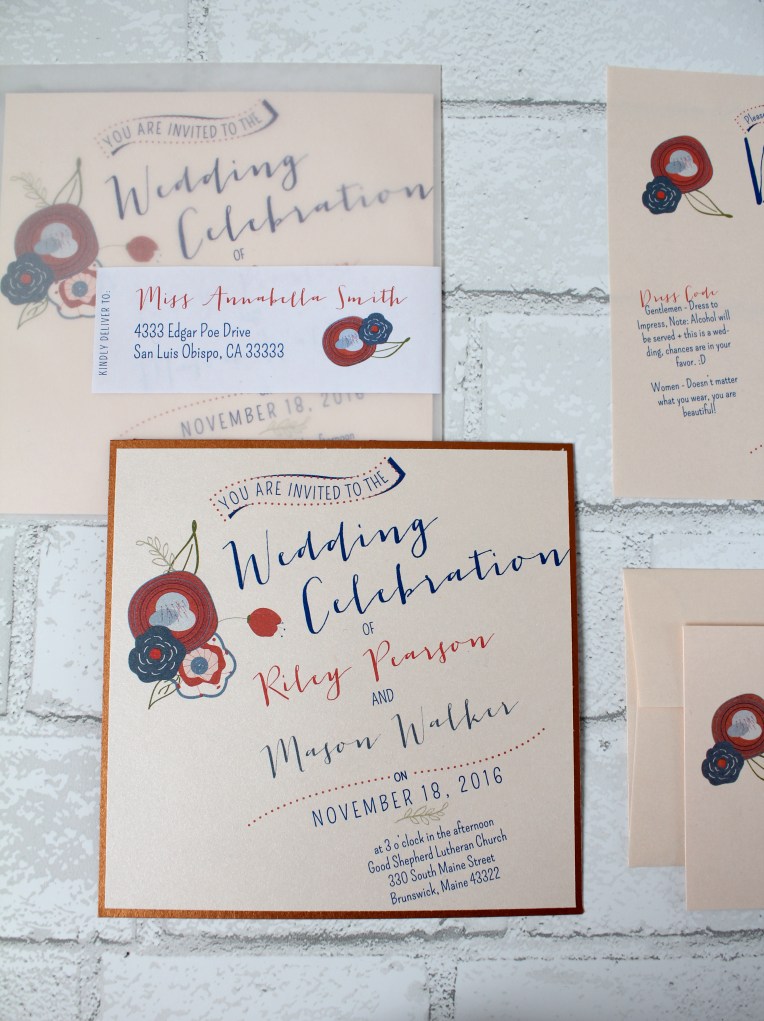 YOU ARE INVITED TO THE
Wedding
Celebration
OF
KINDLY DELIVER TO:
Miss Annabella Smith
4333 Edgar Poe Drive
San Luis Obispo, CA 33333
NOVEMBER 18, 2016
Please
Dress Code
Gentlemen - Dress to
Impress, Note: Alcohol will
be served + this is a wed-
ding, chances are in your
favor. :D
Women - Doesn't matter
what you wear, you are
beautiful!
YOU ARE INVITED TO THE
Wedding
Celebration
OF
Riley Pearson
AND
Mason Walker
ON
NOVEMBER 18, 2016
at 3 o'clock in the afternoon
Good Shepherd Lutheran Church
330 South Maine Street
Brunswick, Maine 43322